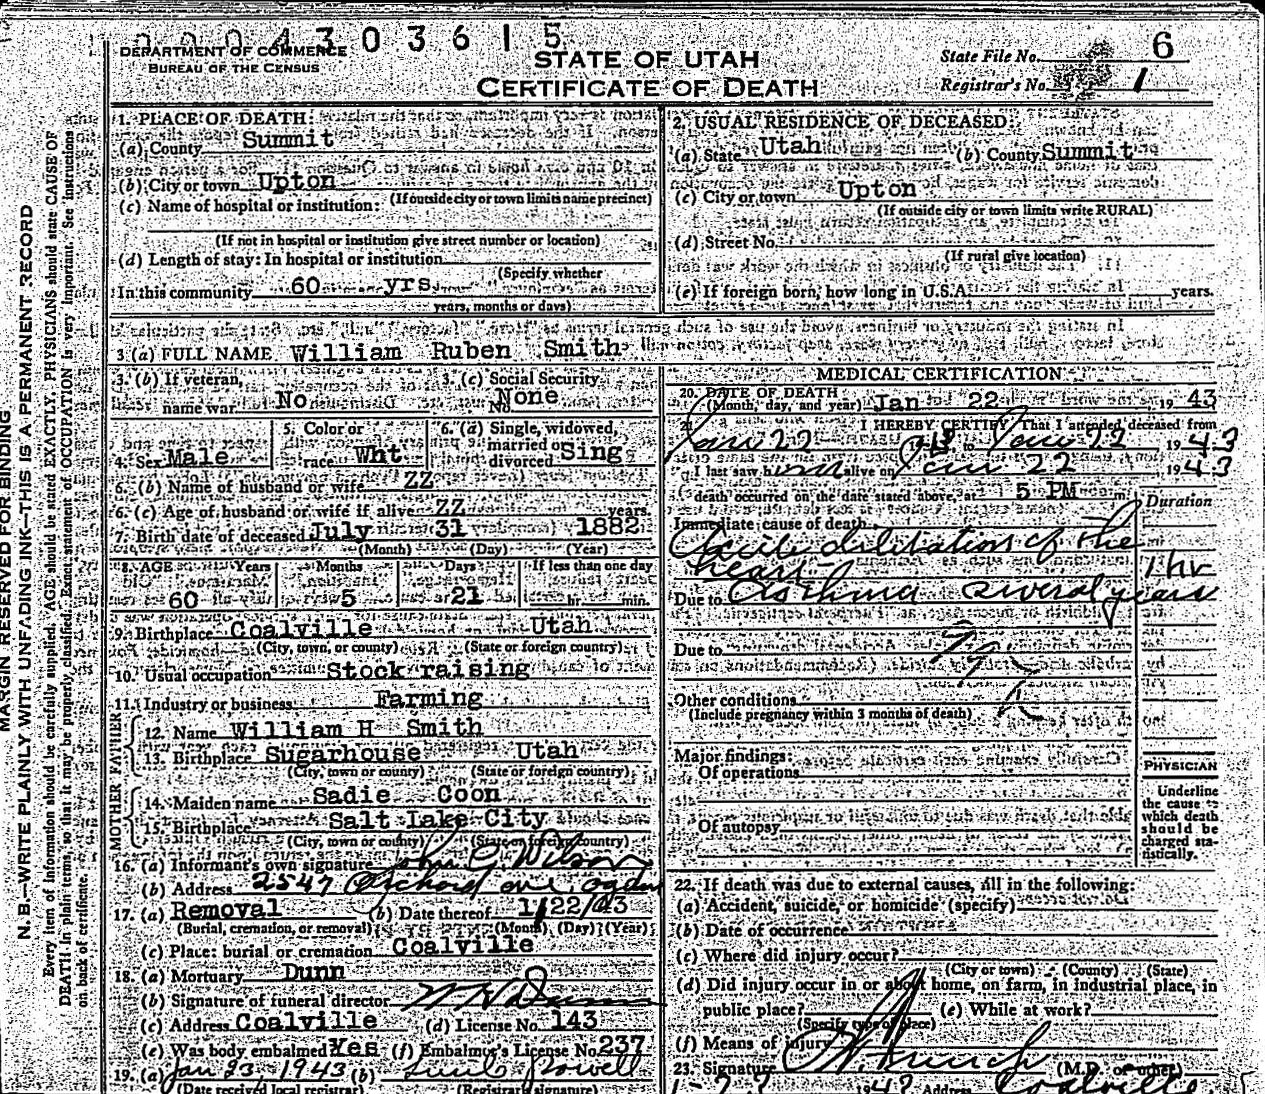 0 0 0 4 3 0 3 6 1 5
DEPARTMENT OF COMMERCE
BUREAU OF THE CENSUS
STATE OF UTAH
CERTIFICATE OF DEATH
State File No. 6
Registrar's No. 1
MARGIN RESERVED FOR BINDING
N. B.—WRITE PLAINLY WITH UNFADING INK—THIS IS A PERMANENT RECORD
Every item of information should be carefully supplied. AGE should be stated EXACTLY. PHYSICIANS should state CAUSE OF
DEATH in plain terms, so that it may be properly classified. Exact statement of OCCUPATION is very important. See instructions
on back of certificate.
1. PLACE OF DEATH:
(a) County Summit
(b) City or town Upton
(If outside city or town limits name precinct)
(c) Name of hospital or institution:
(If not in hospital or institution give street number or location)
(d) Length of stay: In hospital or institution
(Specify whether
In this community 60 yrs.
years, months or days)
2. USUAL RESIDENCE OF DECEASED:
(a) State Utah (b) County Summit
(c) City or town Upton
(If outside city or town limits write RURAL)
(d) Street No.
(If rural give location)
(e) If foreign born, how long in U.S.A. years.
3 (a) FULL NAME William Ruben Smith
3. (b) If veteran, name war No
3. (c) Social Security No. None
4. Sex Male
5. Color or race Wht
6. (a) Single, widowed, married or divorced Sing
6. (b) Name of husband or wife ZZ
6. (c) Age of husband or wife if alive ZZ years
7. Birth date of deceased July 31 1882
(Month) (Day) (Year)
8. AGE Years Months Days If less than one day
60 5 21 hr. min.
9. Birthplace Coalville Utah
(City, town, or county) (State or foreign country)
10. Usual occupation Stock raising
11. Industry or business Farming
FATHER
12. Name William H Smith
13. Birthplace Sugarhouse Utah
(City, town or county) (State or foreign country)
MOTHER
14. Maiden name Sadie Coon
15. Birthplace Salt Lake City
(City, town or county) (State or foreign country)
16. (a) Informant's own signature John G Wilson
(b) Address 2547 Orchard ave, Ogden
17. (a) Removal (b) Date thereof 1/22/43
(Burial, cremation, or removal) (Month) (Day) (Year)
(c) Place: burial or cremation Coalville
18. (a) Mortuary Dunn
(b) Signature of funeral director Dunn
(c) Address Coalville (d) License No. 143
(e) Was body embalmed? Yes (f) Embalmer's License No. 237
19. (a) Jan 23, 1943 (b) Powell
(Date received local registrar) (Registrar's signature)
MEDICAL CERTIFICATION
20. DATE OF DEATH
(Month, day, and year) Jan 22 , 19 43
21. I HEREBY CERTIFY, That I attended deceased from
Jan 22 to Jan 22 19 43
I last saw him alive on Jan 22 , 19 43
death occurred on the date stated above, at 5 PM m.
Duration
Immediate cause of death
Acute dilitation of the
heart 1 hr
Due to Asthma several years
Due to
Other conditions
(Include pregnancy within 3 months of death)
Major findings:
Of operations
Of autopsy
PHYSICIAN
Underline
the cause to
which death
should be
charged sta-
tistically.
22. If death was due to external causes, fill in the following:
(a) Accident, suicide, or homicide (specify)
(b) Date of occurrence
(c) Where did injury occur?
(City or town) (County) (State)
(d) Did injury occur in or about home, on farm, in industrial place, in
public place? (e) While at work?
(Specify type of place)
(f) Means of injury
23. Signature (M.D. or other)
Address Coalville